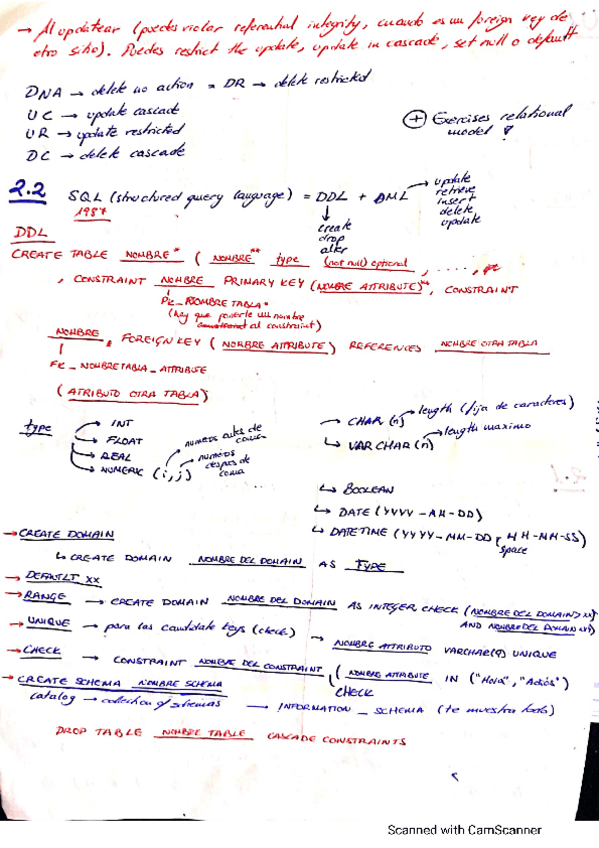 → Al updatear (puedes violar referential integrity, cuando es un foreign key de
otro sitio). Puedes restrict the update, update in cascade, set null o default
DNA → delete no action = DR → delete restricted
UC → update cascade
UR → update restricted
DC → delete cascade
+ Exercises relational
model
2.2 SQL (structured query language) = DDL + DML → update
retrieve
insert
delete
update
1987
↓
create
drop
alter
DDL
CREATE TABLE NOMBRE* ( NOMBRE** type (not null) optional , ....,
, CONSTRAINT NOMBRE PRIMARY KEY (NOMBRE ATTRIBUTE)**, CONSTRAINT
PK_NOMBRE TABLA*
(hay que ponerle un nombre
al constraint)
NOMBRE, FOREIGN KEY ( NOMBRE ATTRIBUTE ) REFERENCES NOMBRE OTRA TABLA
FK_NOMBRETABLA_ATTRIBUTE
( ATRIBUTO OTRA TABLA )
type → INT
→ FLOAT
→ REAL
→ NUMERIC (i,j)
numeros antes de
coma
numeros
despues de
coma
→ CHAR (n) → length (fija de caracteres)
↳ VARCHAR (n) → length maximo
↳ BOOLEAN
↳ DATE (YYYY-MM-DD)
↳ DATETIME (YYYY-MM-DD HH-MM-SS)
space
→ CREATE DOMAIN
↳ CREATE DOMAIN NOMBRE DEL DOMAIN AS TYPE
→ DEFAULT XX
→ RANGE → CREATE DOMAIN NOMBRE DEL DOMAIN AS INTEGER CHECK (NOMBRE DEL DOMAIN > XX
AND NOMBRE DEL DOMAIN < XX)
→ UNIQUE → para las candidate keys (check) → NOMBRE ATTRIBUTO VARCHAR(9) UNIQUE
→ CHECK → CONSTRAINT NOMBRE DEL CONSTRAINT, ( NOMBRE ATTRIBUTE IN ("Hola", "Adiós")
CHECK
→ CREATE SCHEMA NOMBRE SCHEMA
catalog → collection of schemas → INFORMATION_SCHEMA (te muestra todo)
DROP TABLE NOMBRE TABLE CASCADE CONSTRAINTS
Scanned with CamScanner